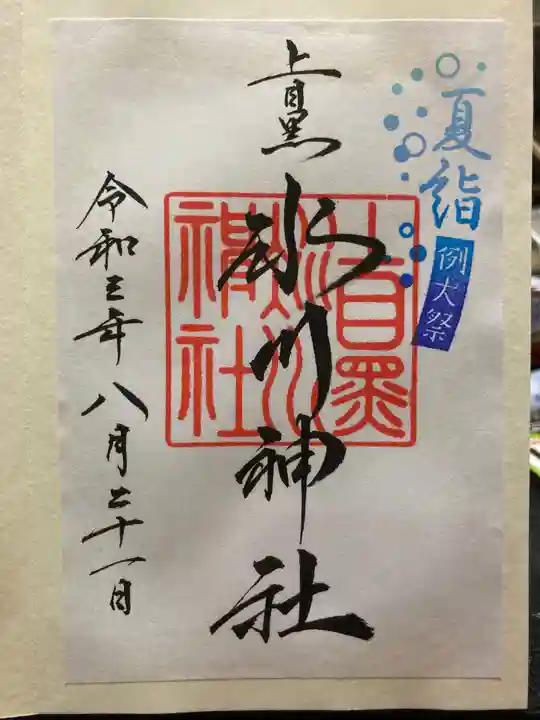 夏詣
例大祭
上目黒
氷川神社
上目黒
氷川
神社
令和三年八月二十一日